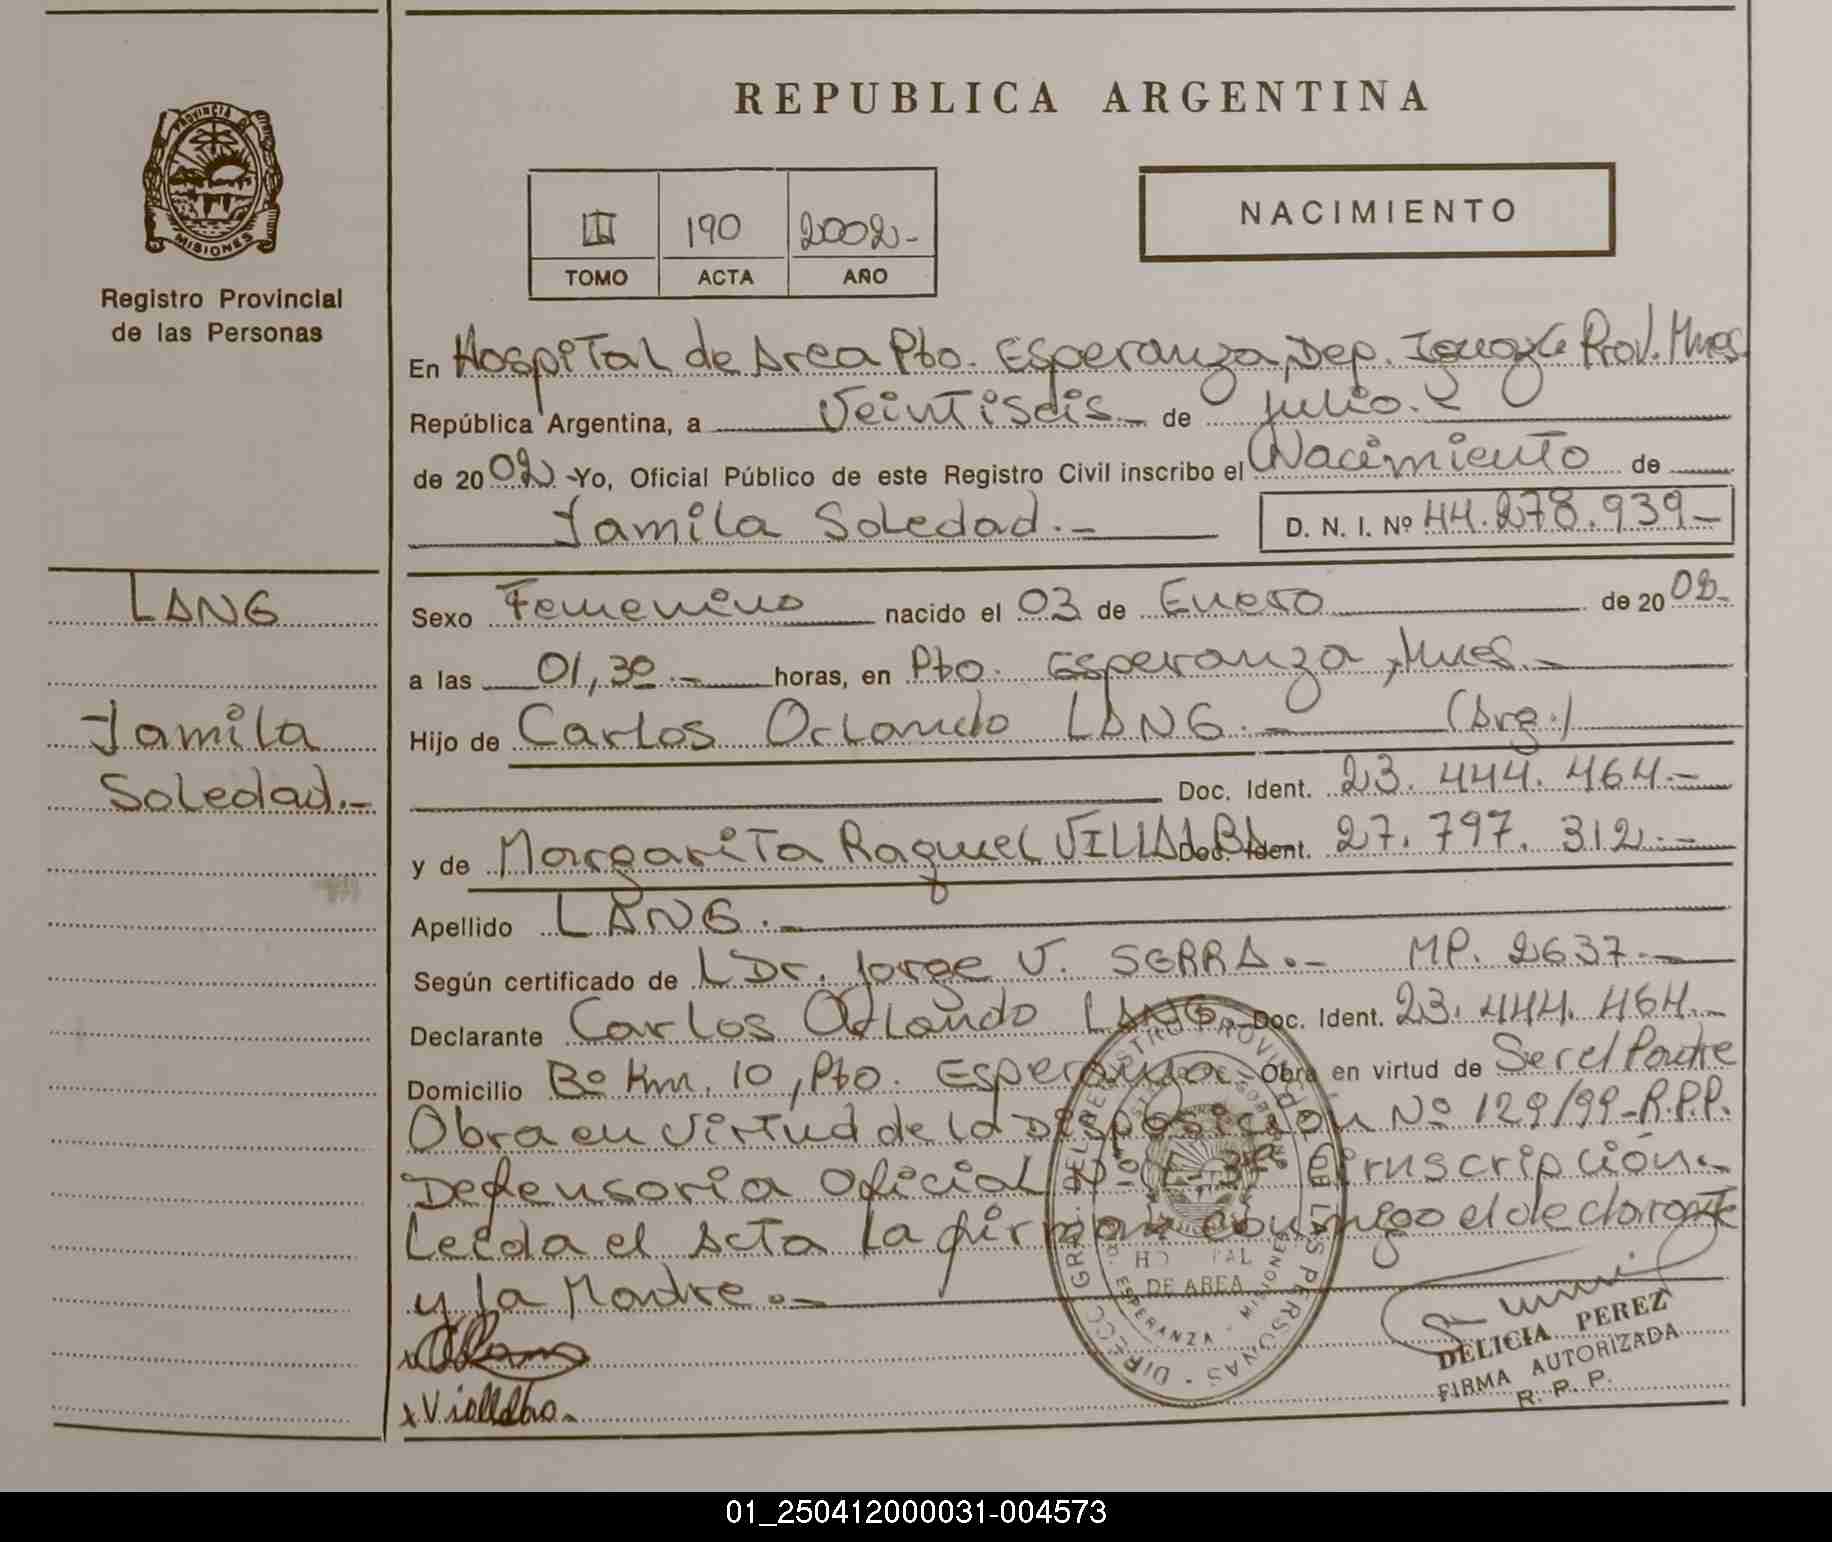 REPUBLICA ARGENTINA
PROVINCIA DE
MISIONES
Registro Provincial
de las Personas
III 190 2002-
TOMO ACTA AÑO
NACIMIENTO
En Hospital de Area Pto. Esperanza, Dep. Iguazú Prov. Mnes.
República Argentina, a Veintiseis.- de julio.-
de 2002 -Yo, Oficial Público de este Registro Civil inscribo el Nacimiento de
Jamila Soledad.- D. N. I. Nº 44.278.939-
LANG
Jamila
Soledad.-
Sexo Femenino nacido el 03 de Enero de 2002-
a las 01,30.- horas, en Pto. Esperanza, Mnes.-
Hijo de Carlos Orlando LANG.- (Arg.)
Doc. Ident. 23.444.464.-
y de Margarita Raquel VILLALBA Doc. Ident. 27.797.312.-
Apellido LANG.-
Según certificado de Dr. Jorge V. SERRA.- MP. 2637.-
Declarante Carlos Orlando LANG.- Doc. Ident. 23.444.464.-
Domicilio Bº Km. 10, Pto. Esperanza.- Obra en virtud de Ser el Padre
Obra en virtud de la Disposición Nº 129/99-R.P.P.
Defensoria Oficial Nº 3ª Cirnscripción.-
Leida el Acta la firman conmigo el declarante
y la Madre.-
x Villalba.
DIRECC. GRAL. DEL REGISTRO PROVINCIAL DE LAS PERSONAS
HOSPITAL
DE AREA
ESPERANZA - MISIONES
DELICIA PEREZ
FIRMA AUTORIZADA
R. P. P.
01_250412000031-004573